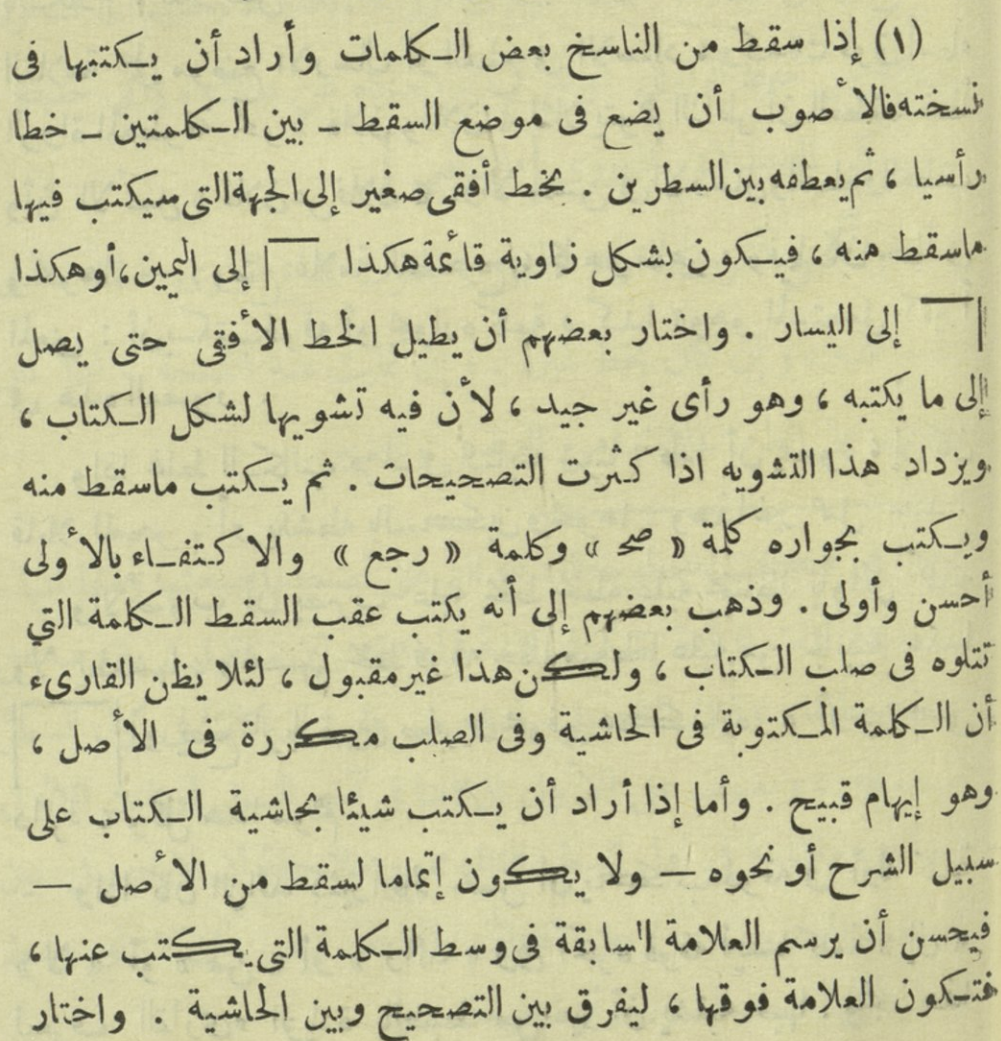 (١) إذا سقط من الناسخ بعض الكلمات وأراد أن يكتبها فى
نسخته فالأصوب أن يضع فى موضع السقط - بين الكلمتين - خطا
رأسيا ، ثم يعطفه بين السطرين . بخط أفقى صغير إلى الجهة التى سيكتب فيها
ماسقط منه ، فيكون بشكل زاوية قائمة هكذا ‾| إلى اليمين ، أو هكذا
|‾ إلى اليسار . واختار بعضهم أن يطيل الخط الأفقى حتى يصل
إلى ما يكتبه ، وهو رأى غير جيد ، لأن فيه تشويها لشكل الكتاب ،
ويزداد هذا التشويه اذا كثرت التصحيحات . ثم يكتب ماسقط منه
ويكتب بجواره كلمة « صح » وكلمة « رجع » والاكتفاء بالأولى
أحسن وأولى . وذهب بعضهم إلى أنه يكتب عقب السقط الكلمة التي
تتلوه فى صلب الكتاب ، ولكن هذا غير مقبول ، لئلا يظن القارىء
أن الكلمة المكتوبة فى الحاشية وفى الصلب مكررة فى الأصل ،
وهو إيهام قبيح . وأما إذا أراد أن يكتب شيئا بحاشية الكتاب على
سبيل الشرح أو نحوه — ولا يكون إتماما لسقط من الأصل —
فيحسن أن يرسم العلامة السابقة فى وسط الكلمة التى يكتب عنها ،
فتكون العلامة فوقها ، ليفرق بين التصحيح وبين الحاشية . واختار